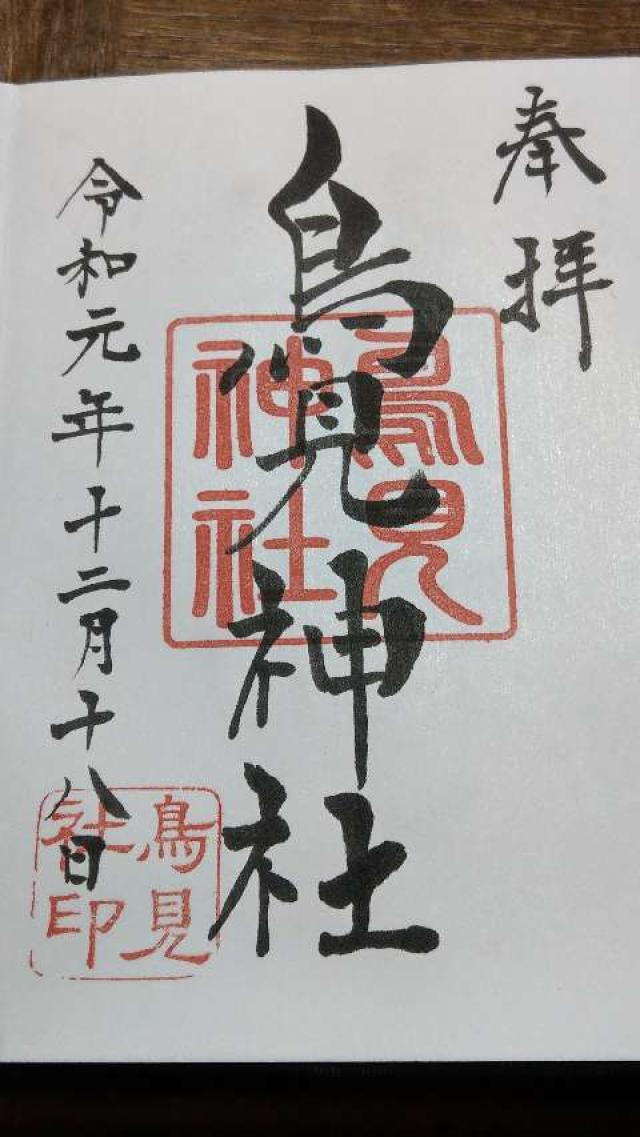 奉拝
鳥見神社
令和元年十二月十八日
鳥見
神社
鳥見
社印